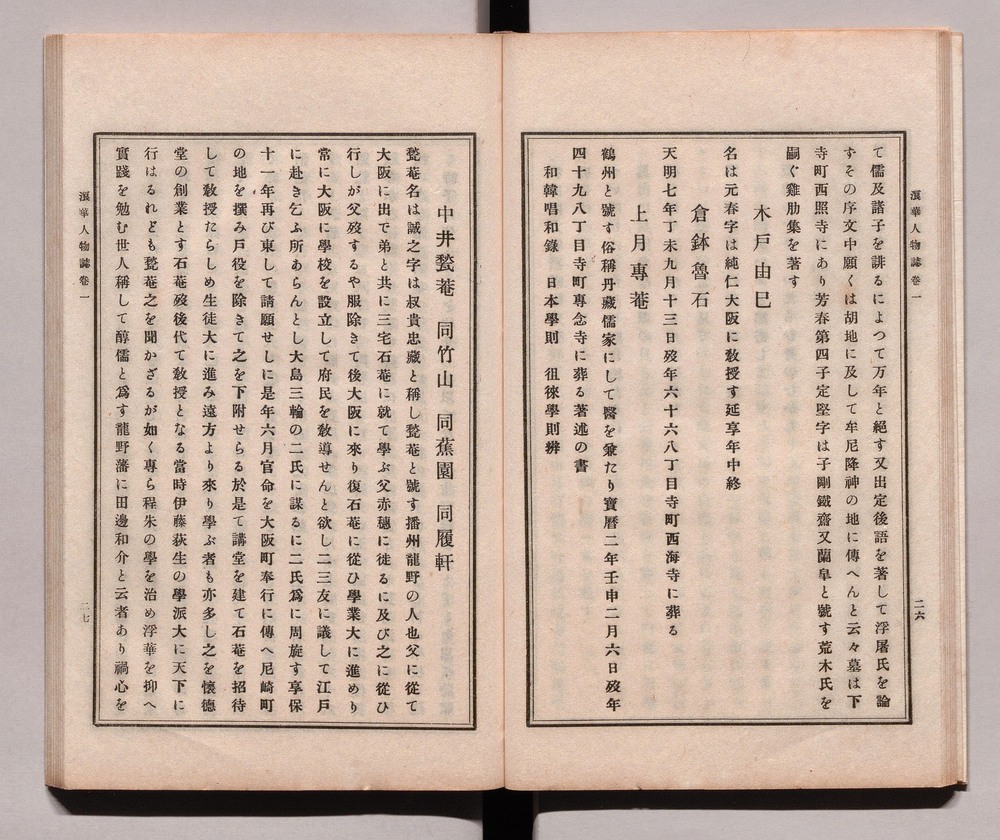 浪華人物誌卷一
二六
て儒及諸子を誹るによつて万年と絕す又出定後語を著して浮屠氏を論
すその序文中願くは胡地に及して牟尼降神の地に傳へんと云々墓は下
寺町西照寺にあり芳春第四子定堅字は子剛鐵齋又蘭皐と號す荒木氏を
嗣ぐ雞肋集を著す
木戸由巳
名は元春字は純仁大阪に敎授す延享年中終
倉鉢魯石
天明七年丁未九月十三日歿年六十六八丁目寺町西海寺に葬る
上月專菴
鶴州と號す俗稱丹藏儒家にして醫を兼たり寶曆二年壬申二月六日歿年
四十九八丁目寺町專念寺に葬る著述の書
和韓唱和錄　日本學則　徂徠學則辨
中井甃菴　同竹山　同蕉園　同履軒
甃菴名は誠之字は叔貴忠藏と稱し甃菴と號す播州龍野の人也父に從て
大阪に出で弟と共に三宅石菴に就て學ぶ父赤穗に徙るに及び之に從ひ
行しが父歿するや服除きて後大阪に來り復石菴に從ひ學業大に進めり
常に大阪に學校を設立して府民を敎導せんと欲し二三友に議して江戸
に赴き乞ふ所あらんとし大島三輪の二氏に謀るに二氏爲に周旋す享保
十一年再び東して請願せしに是年六月官命を大阪町奉行に傳へ尼崎町
の地を撰み戸役を除きて之を下附せらる於是て講堂を建て石菴を招待
して敎授たらしめ生徒大に進み遠方より來り學ぶ者も亦多し之を懷德
堂の創業とす石菴歿後代て敎授となる當時伊藤荻生の學派大に天下に
行はるれども甃菴之を聞かざるが如く專ら程朱の學を治め浮華を抑へ
實踐を勉む世人稱して醇儒と爲す龍野藩に田邊和介と云者あり禍心を
浪華人物誌卷一
二七